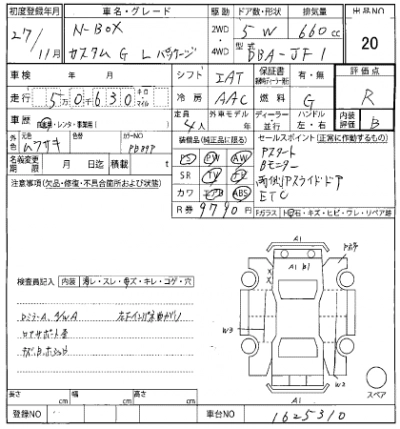 初度登録年月 車名・グレード 駆動 ドア数・形状 排気量 出品NO
27/11月 N-BOX 2WD・4WD 5W 660cc 20
カスタム G L パッケージ 型式 DBA-JF1
車検 年 月 シフト IAT 保証書 有・無 評価点
走行 50630 キロ マイル 冷房 AAC 燃料 G R
車歴 自家用・レンタ・事業用 定員 4人 外車モデル 年 ディーラー 並行 ハンドル 左・右 内装評価 B
外色 元色 ムラサキ 替色 カラーNO PB89P
装備品 (純正品に限る) セールスポイント (正常に作動するもの)
名義変更期限 月 日迄 積載 t
PS PW AW
SR TV レ
カワ エアB ABS
R券 9790円
Pスタート
Bモニター
両側Pスライドドア
ETC
注意事項(欠品・修復・不具合箇所および状態)
Fガラス トビ石・キズ・ヒビ・ワレ・リペア跡
検査員記入 内装 汚レ・スレ・キズ・キレ・コゲ・穴
A1
A1 B1
W3
W2
A1
スペア
長さ cm 幅 cm 高さ cm
登録NO 車台NO 1625310